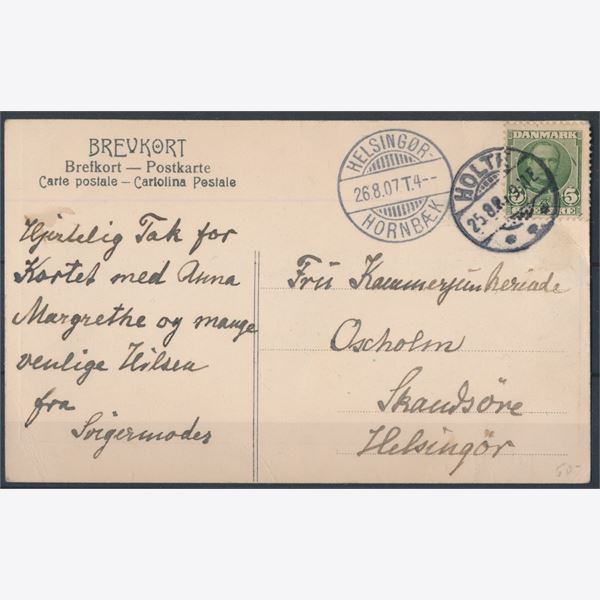 BREVKORT
Brefkort — Postkarte
Carte postale — Cartolina Postale
HELSINGØR-
26.8.07.T.4--
HORNBÆK
HOLTE
25.8.
DANMARK
5 5
ØRE
Hjertelig Tak for
Kortet med Anna
Margrethe og mange
venlige Hilsen
fra
Svigermoder
Fru Kammerjunkerinde
Oxholm
Skandsöre
Helsingör
50-